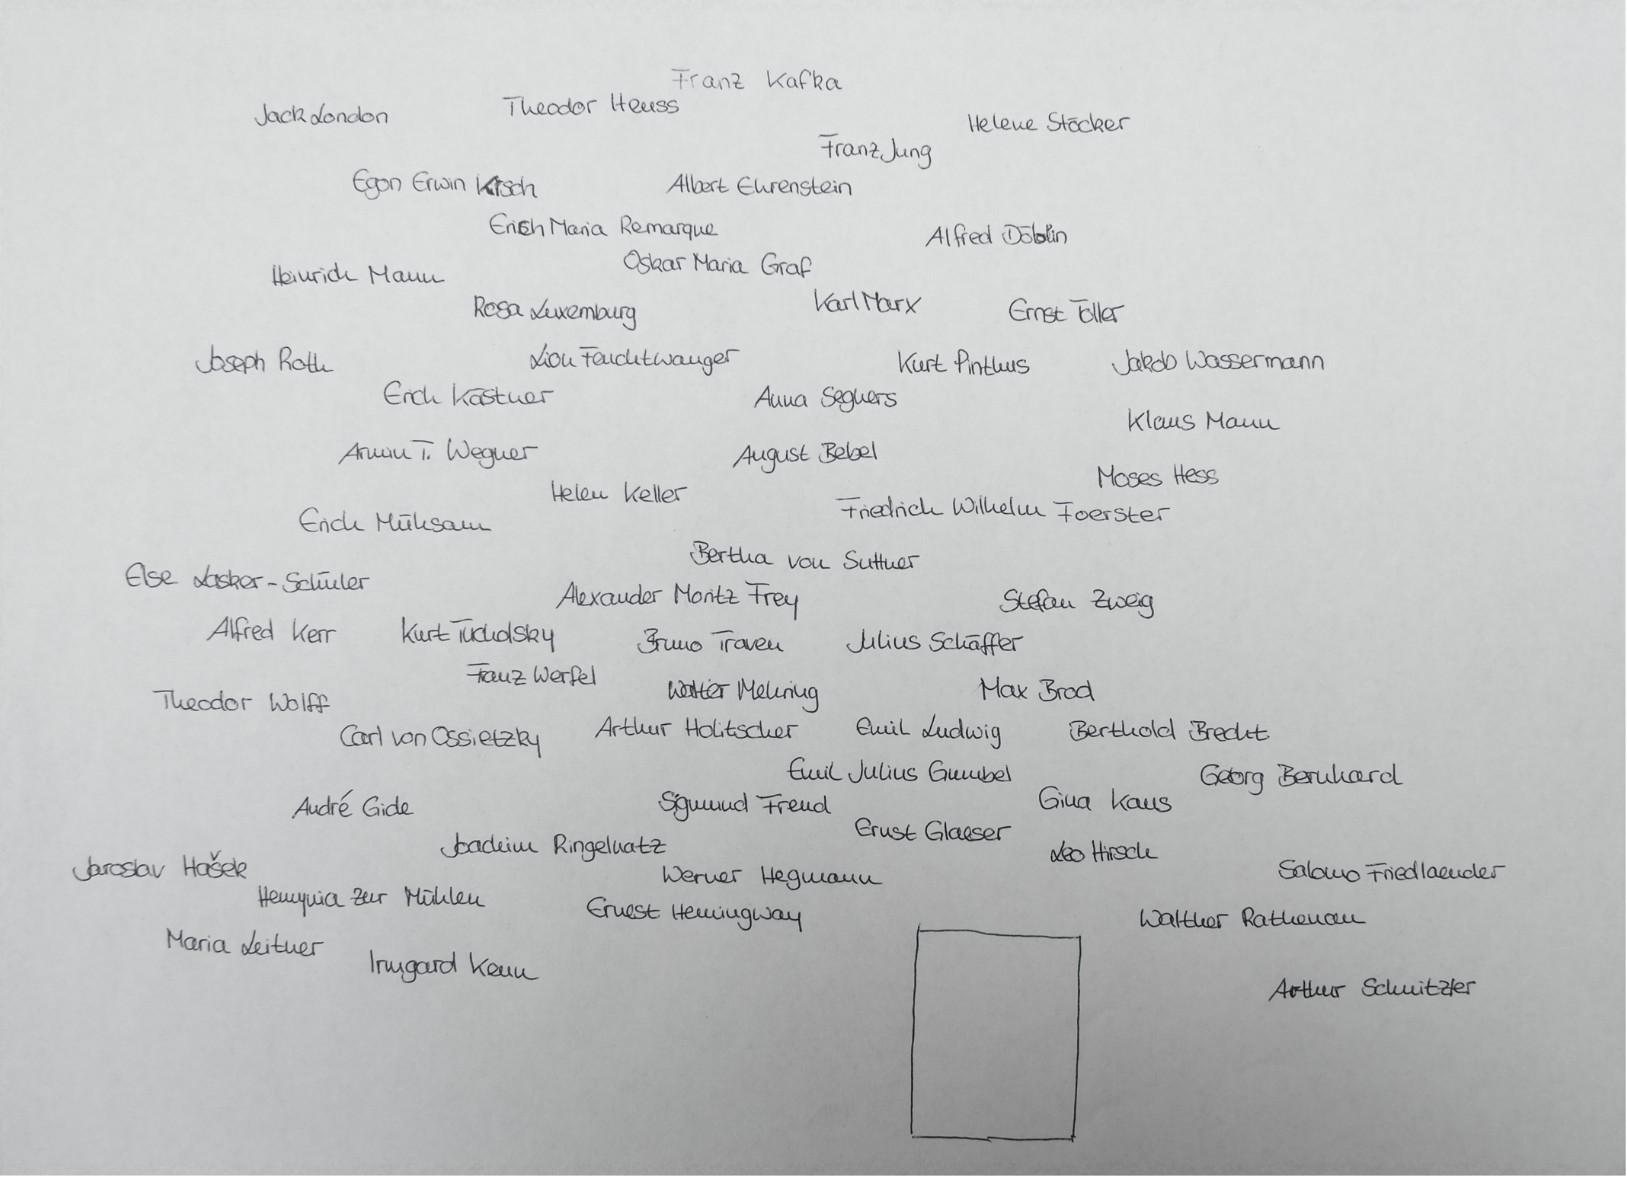 Franz Kafka
Jack London
Theodor Heuss
Helene Stöcker
Franz Jung
Egon Erwin Kisch
Albert Ehrenstein
Erich Maria Remarque
Alfred Döblin
Heinrich Mann
Oskar Maria Graf
Rosa Luxemburg
Karl Marx
Ernst Toller
Joseph Roth
Lion Feuchtwanger
Kurt Pinthus
Jakob Wassermann
Erich Kästner
Anna Seghers
Klaus Mann
Armin T. Wegner
August Bebel
Moses Hess
Helen Keller
Friedrich Wilhelm Foerster
Erich Mühsam
Bertha von Suttner
Else Lasker-Schüler
Alexander Moritz Frey
Stefan Zweig
Alfred Kerr
Kurt Tucholsky
Bruno Traven
Julius Schäffer
Franz Werfel
Walter Mehring
Max Brod
Theodor Wolff
Carl von Ossietzky
Arthur Holitscher
Emil Ludwig
Berthold Brecht
Emil Julius Gumbel
Georg Bernhard
André Gide
Sigmund Freud
Gina Kaus
Ernst Glaeser
Joachim Ringelnatz
Leo Hirsch
Jaroslav Hašek
Werner Hegmann
Salomo Friedlaender
Hermynia Zur Mühlen
Ernest Hemingway
Walther Rathenau
Maria Leitner
Irmgard Keun
Arthur Schnitzler